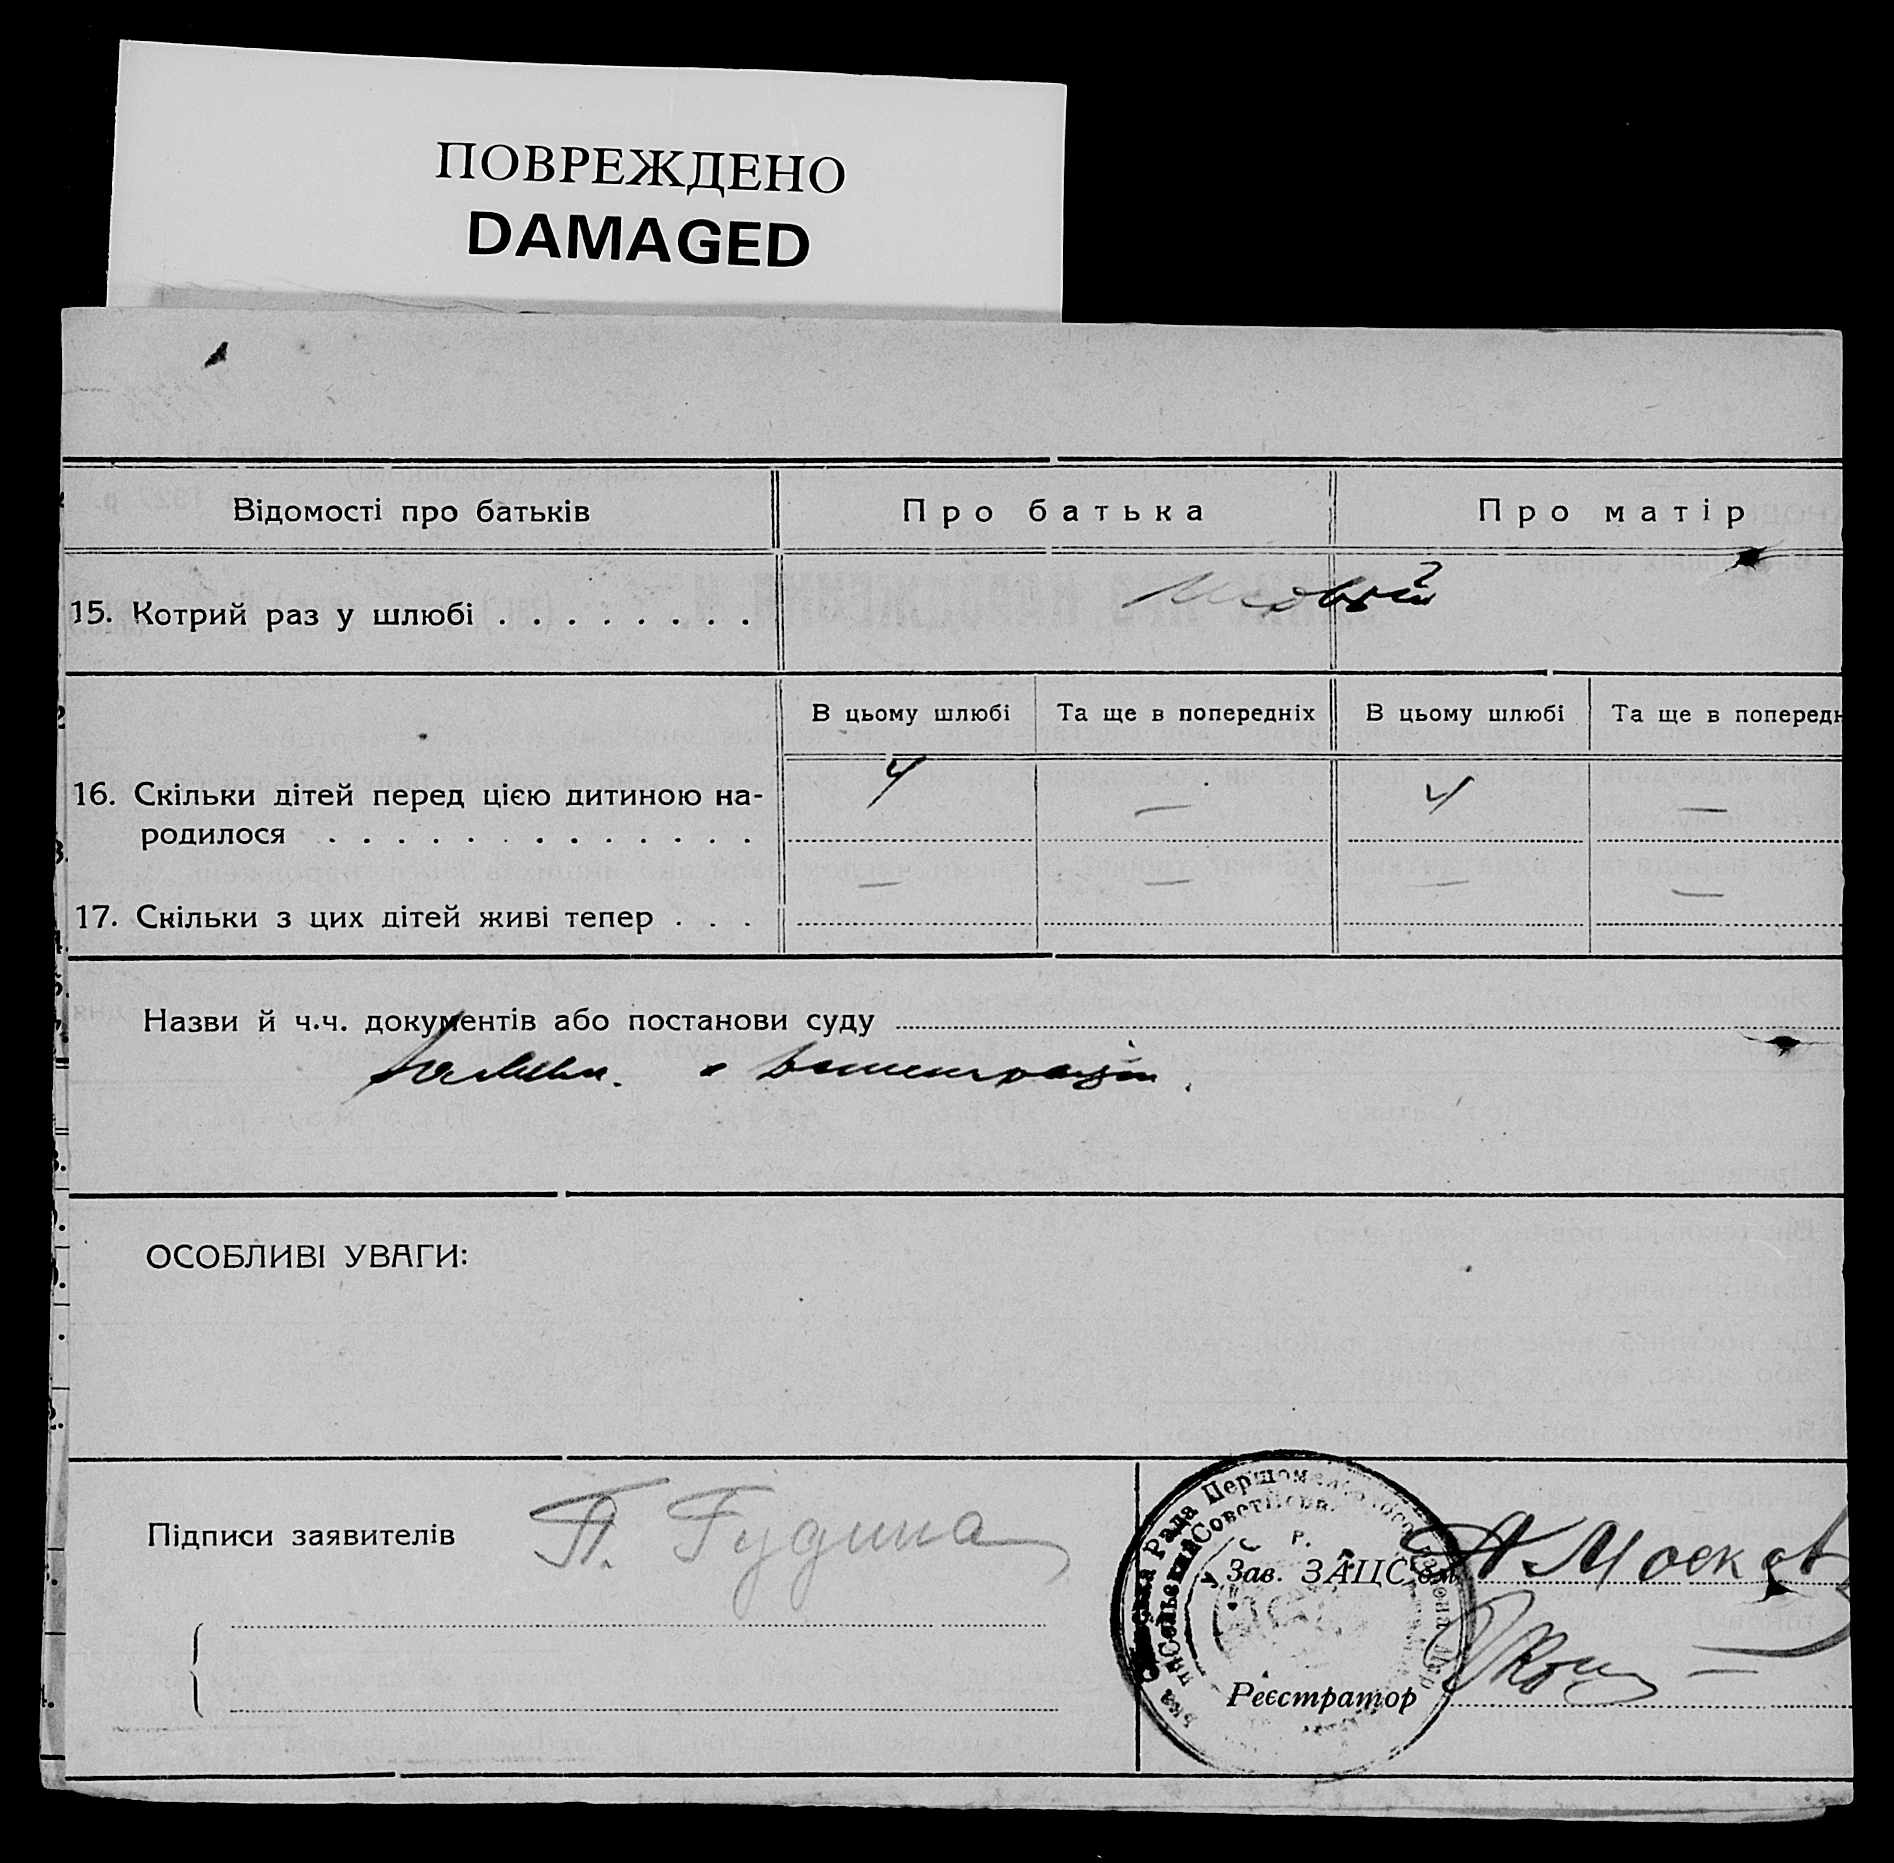 ПОВРЕЖДЕНО
DAMAGED
Відомості про батьків
Про батька
Про матір
15. Котрий раз у шлюбі . . . . . . . . .
В цьому шлюбі
Та ще в попередніх
В цьому шлюбі
Та ще в поперед
16. Скільки дітей перед цією дитиною на-
родилося . . . . . . . . . . . . .
4
—
4
—
17. Скільки з цих дітей живі тепер . . .
—
—
—
—
Назви й ч.ч. документів або постанови суду
ОСОБЛИВІ УВАГИ:
Підписи заявителів
П. Гудина
Зав. ЗАЦС'ом
А Москов
Реєстратор